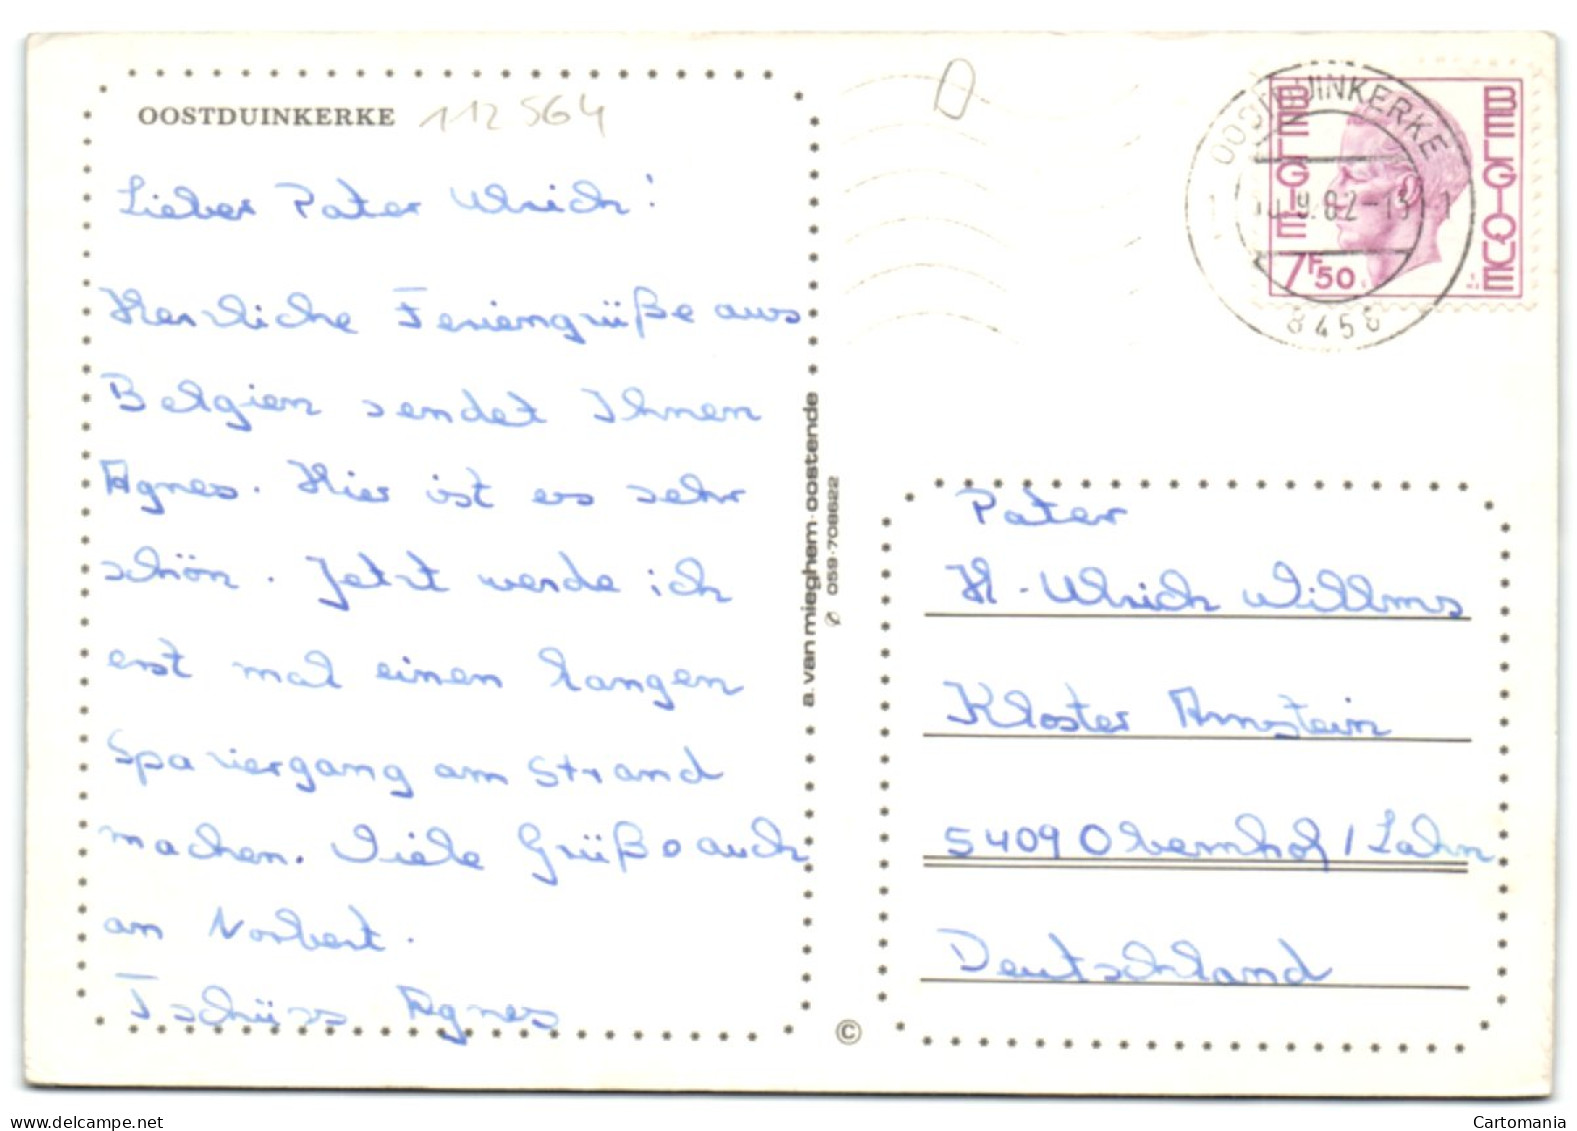 OOSTDUINKERKE 112 564
Lieber Pater Ulrich!
Herzliche Feriengrüße aus
Belgien sendet Ihnen
Agnes. Hier ist es sehr
schön. Jetzt werde ich
erst mal einen langen
Spaziergang am Strand
machen. Viele Grüße auch
an Norbert.
Tschüss Agnes
a. van mieghem - oostende
✆ 059-708622
©
OOSTDUINKERKE
9.82-15
8458
BELGIE
BELGIQUE
7F50
Pater
H.-Ulrich Willms
Kloster Arnstein
5409 Obernhof / Lahn
Deutschland
delcampe.net
Cartomania